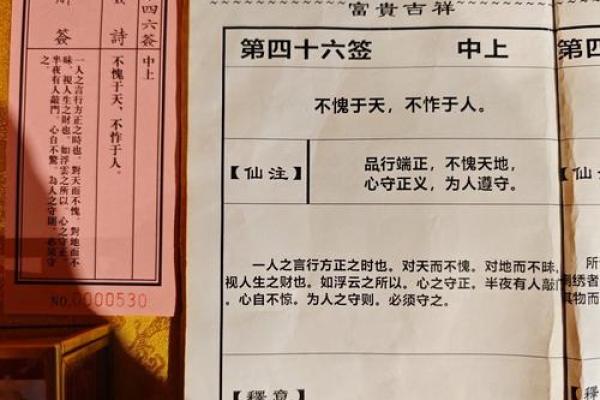 四六簽
簽
詩
簽
中上
不愧于天、不怍于人。
一人之言行方正之時也。對天而不愧。對地而不
昧。視人生之財也。如浮雲之所以。心之守正。
半夜有人敲門。心自不驚。為人之守則。必須守
之。
NO.0000530
富貴吉祥
第四十六签
中上
不愧于天，不怍于人。
【仙注】
品行端正，不愧天地，
心守正义，为人遵守。
一人之言行方正之时也。对天而不愧。对地而不昧，
视人生之财也。如浮云之所以。心之守正。半夜有人敲门
。心自不惊。为人之守则。必须守之。
【釋意】
第四
【仙
所
绣者
其物而
【釋